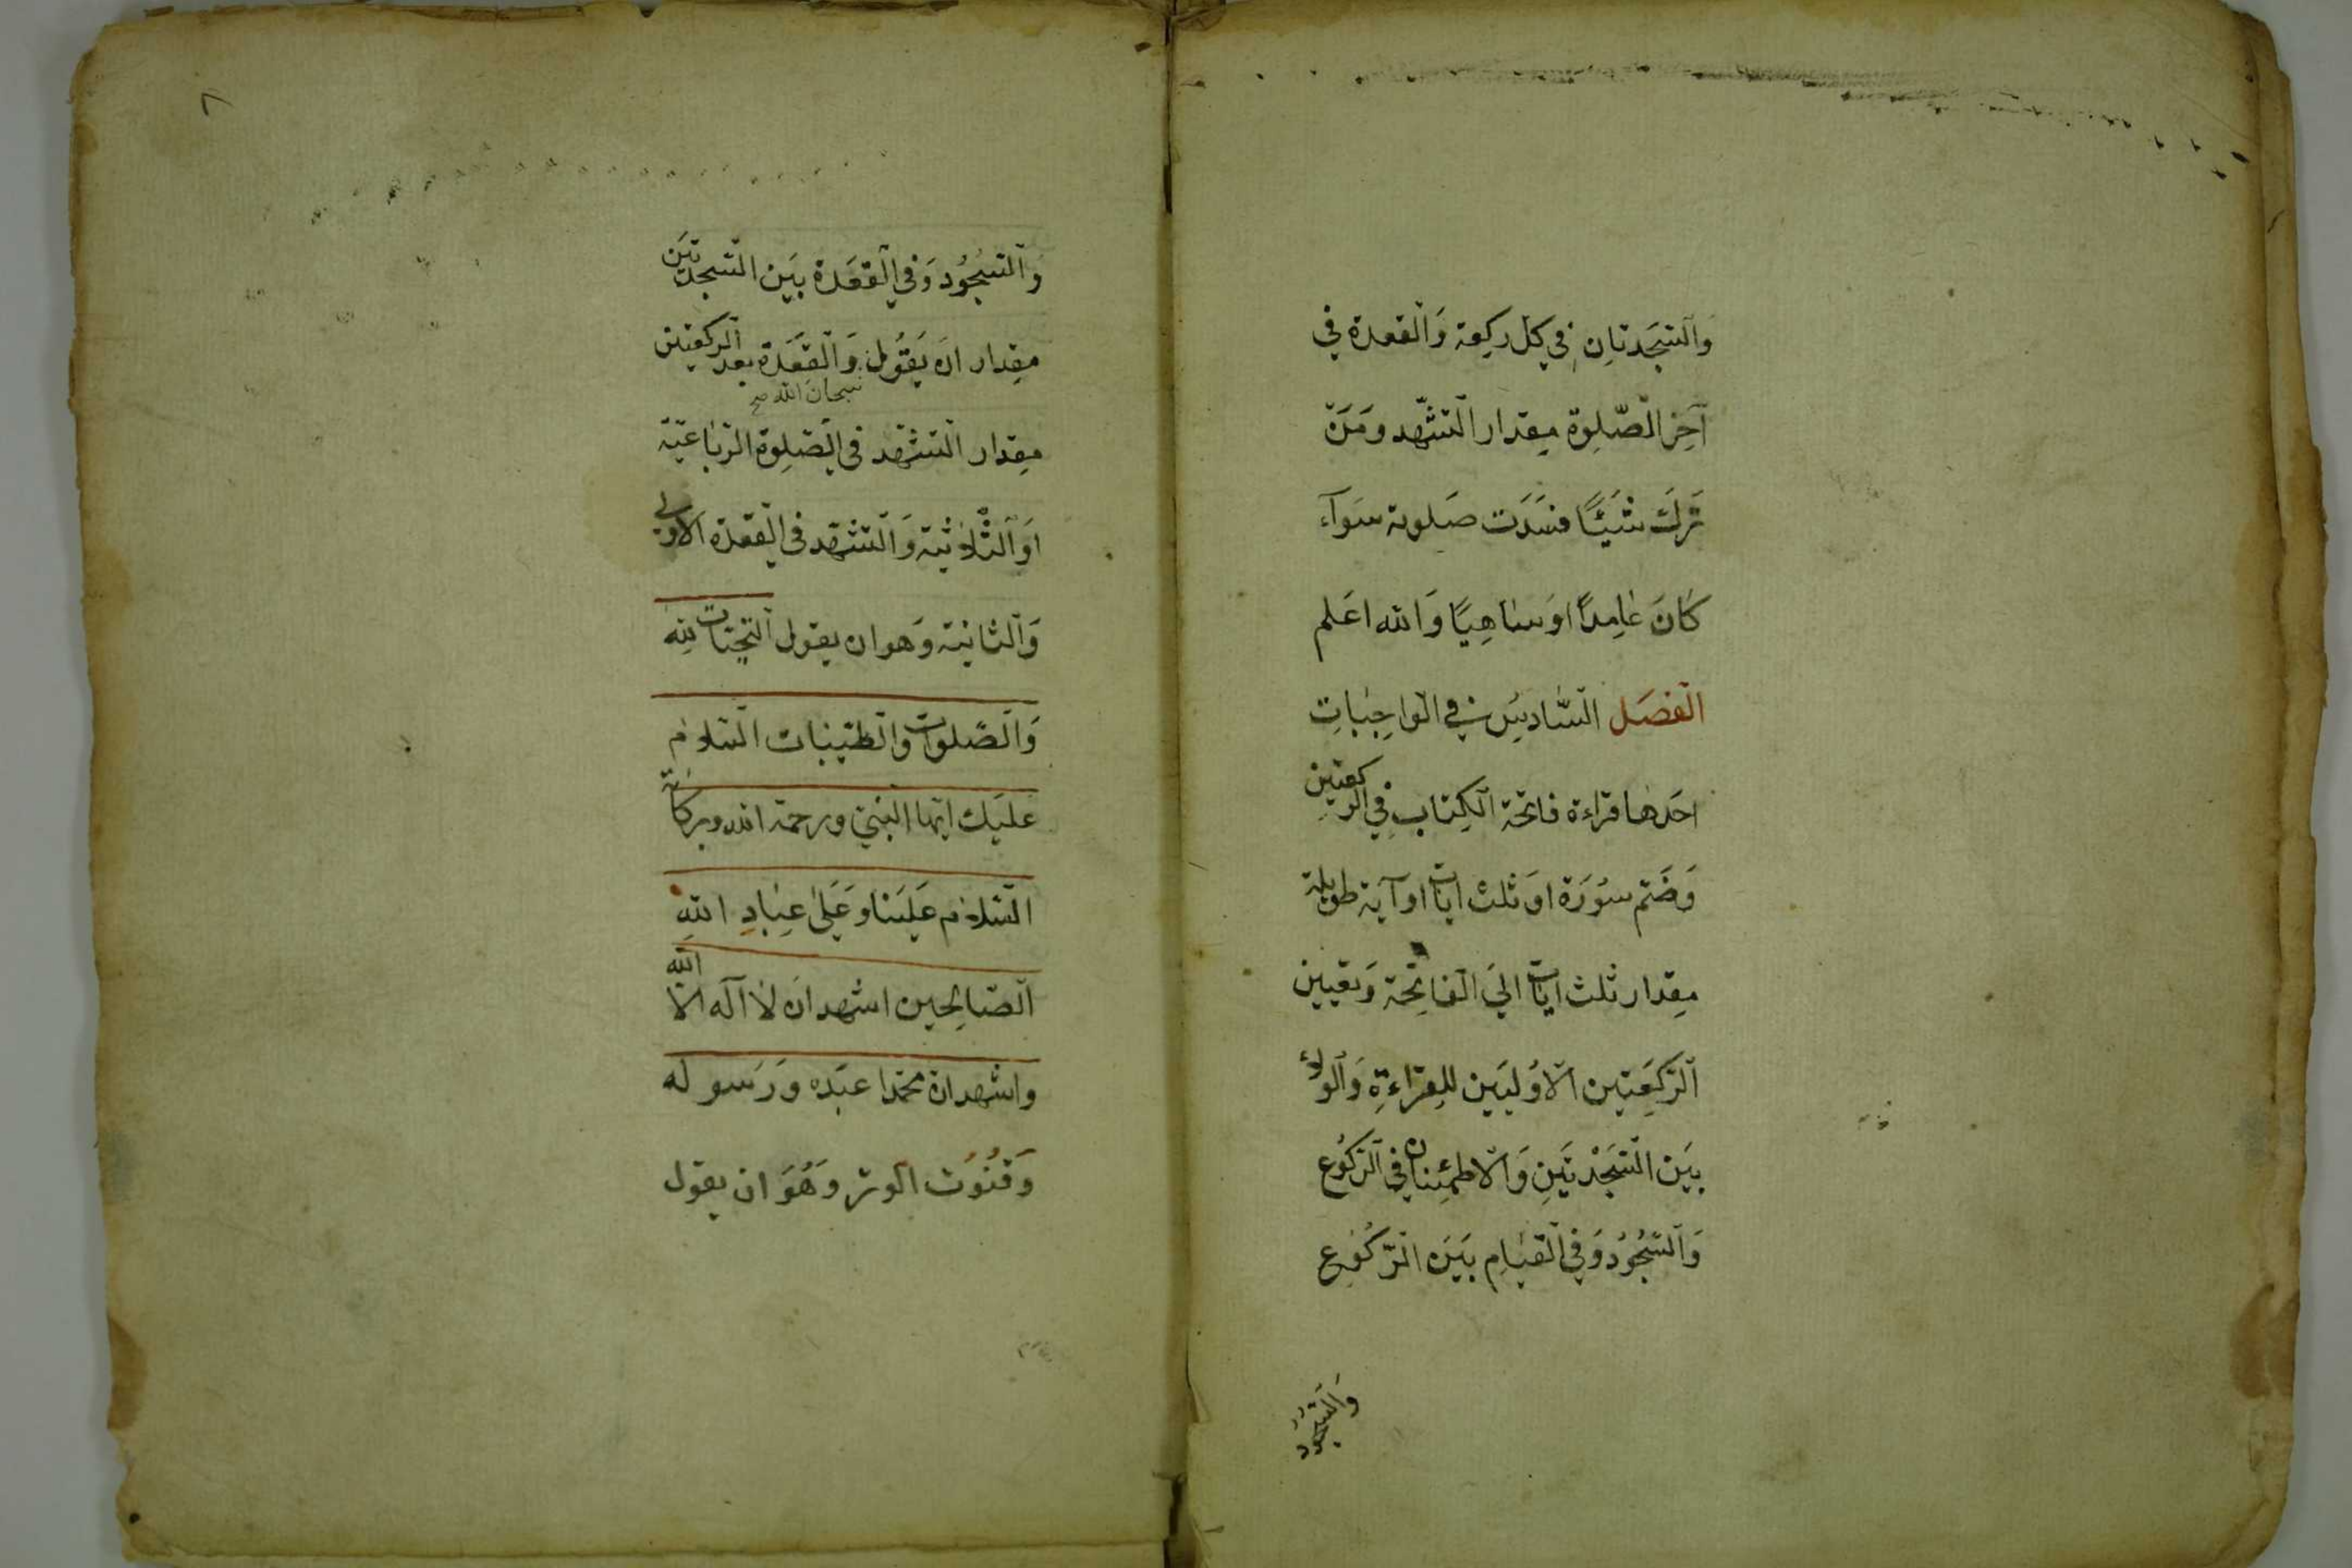 وَالسَّجَدتَانِ فِي كل ركِعة وَالقعدة في
آخِر الصَّلوة مِقدار التشَّهد وَمَن
تَركَ شَيئًا فسَدَت صَلوته سَوآء
كَانَ عَامِدًا اوَسَاهِيًا وَالله اعَلم
الفصَل السَّادِسِ في الوَاجِبَاتِ
احَدها قراءة فاتحة الكِتابِ فِي الركعتينِ
وَضَم سوُرَة اوَثلث ايات او آية طويلة
مِقدار ثلث ايات الي الفاتِحة وَتعيين
الرَكعِتين الاوُليَين للِقراءةِ وَالولاء
بيَن السَّجَدتيَنِ وَالاطمئِنان في الركوُع
وَالسُّجُوُد وَفِي القيَامِ بَيَن الرَّكوُعِ
وَالسُّجُوُد
٨
وَالسُّجوُد وَفي القعَدة بيَن السَّجدتيَن
مِقدار ان يَقوُل وَالقعَدة بعد الركعتين
سبحان الله صح
مِقدار التشهد في الصَّلوة الرّبَاعيّة
اوَ الثّلاثية وَالتشهد في القعدة الاولي
وَالثانية وَهو ان يقول التحيَّات لِله
وَالصَّلوات وَالطيّبات السَّلام
عليَك ايّها النّبيّ ورحمة الله وبركاته
السَّلام عَليَنا وَعَلىٰ عِبَادِ اللهِ
الصَّالِحين اشهد ان لا آله الا الله
واشهد ان محَمّدا عبَده وَرَسوله
وَقنُوُت الوتر وَهُوَ ان يقول